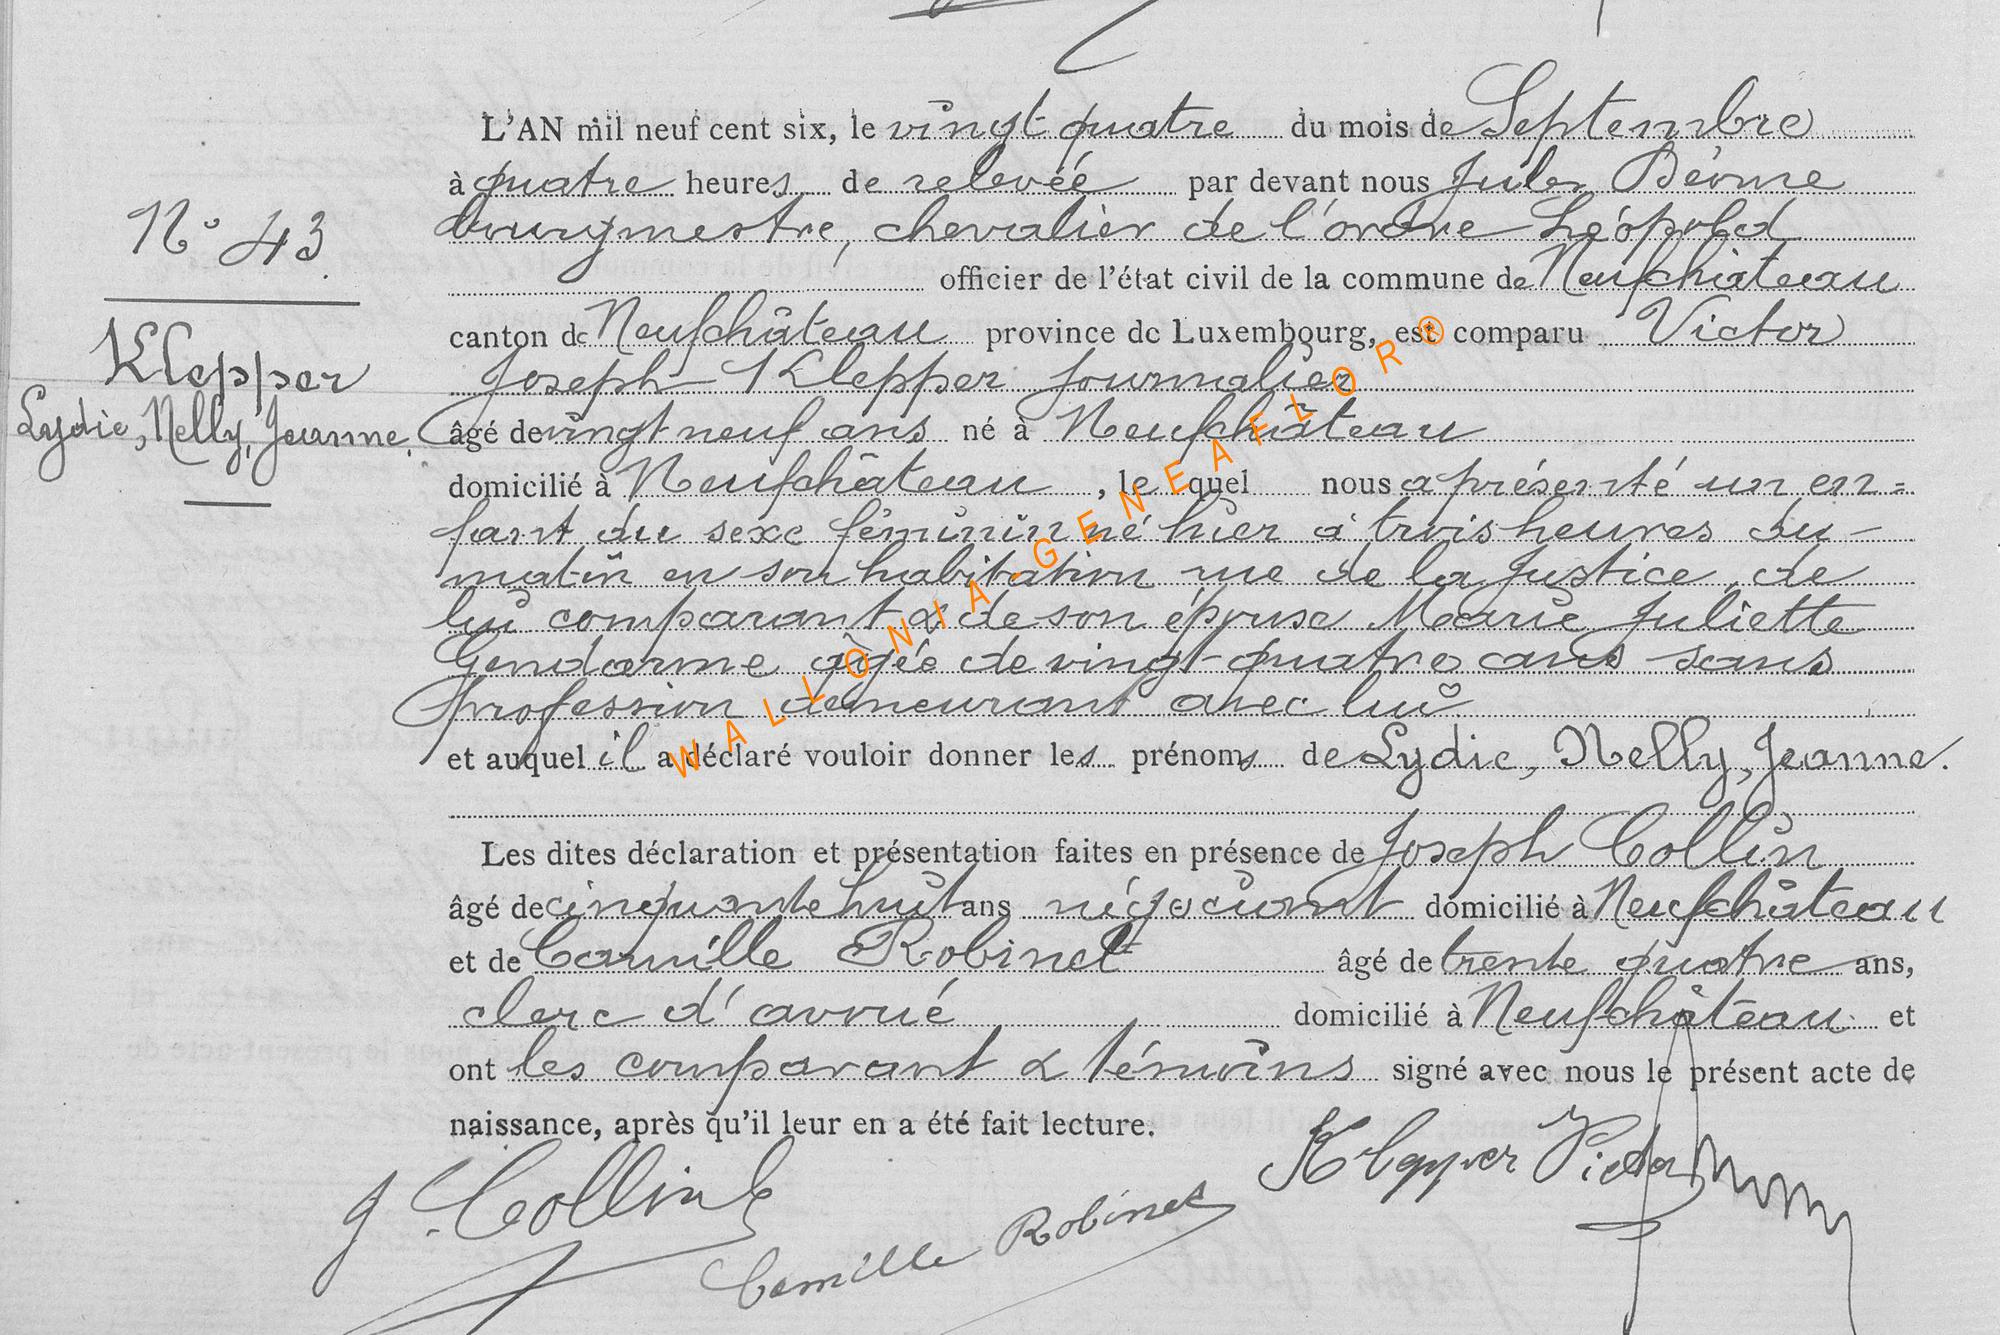 L'AN mil neuf cent six, le vingt quatre du mois de Septembre
à quatre heures de relevée par devant nous Jules
bourgmestre, chevalier de l'ordre Léopold
officier de l'état civil de la commune de Neufchâteau
N° 43
canton de Neufchâteau province de Luxembourg, est comparu Victor
Joseph Klepper journalier
Klepper
Lydie, Nelly, Jeanne.
âgé de vingt neuf ans né à Neufchâteau
domicilié à Neufchâteau, le quel nous a présenté un en=
fant du sexe féminin né hier à trois heures du
matin en son habitation rue de la Justice, de
lui comparant & de son épouse Marie Juliette
Gendarme agée de vingt-quatre ans sans
profession demeurant avec lui
et auquel il a déclaré vouloir donner les prénoms de Lydie, Nelly, Jeanne.
Les dites déclaration et présentation faites en présence de Joseph Collin
âgé de cinquante huit ans négociant domicilié à Neufchâteau
et de Camille Robinet âgé de trente quatre ans,
clerc d'avoué domicilié à Neufchâteau et
ont les comparant & témoins signé avec nous le présent acte de
naissance, après qu'il leur en a été fait lecture.
J. Collin
Camille Robinet
Klepper Victor
WALLONIA-GENEAFLOR®